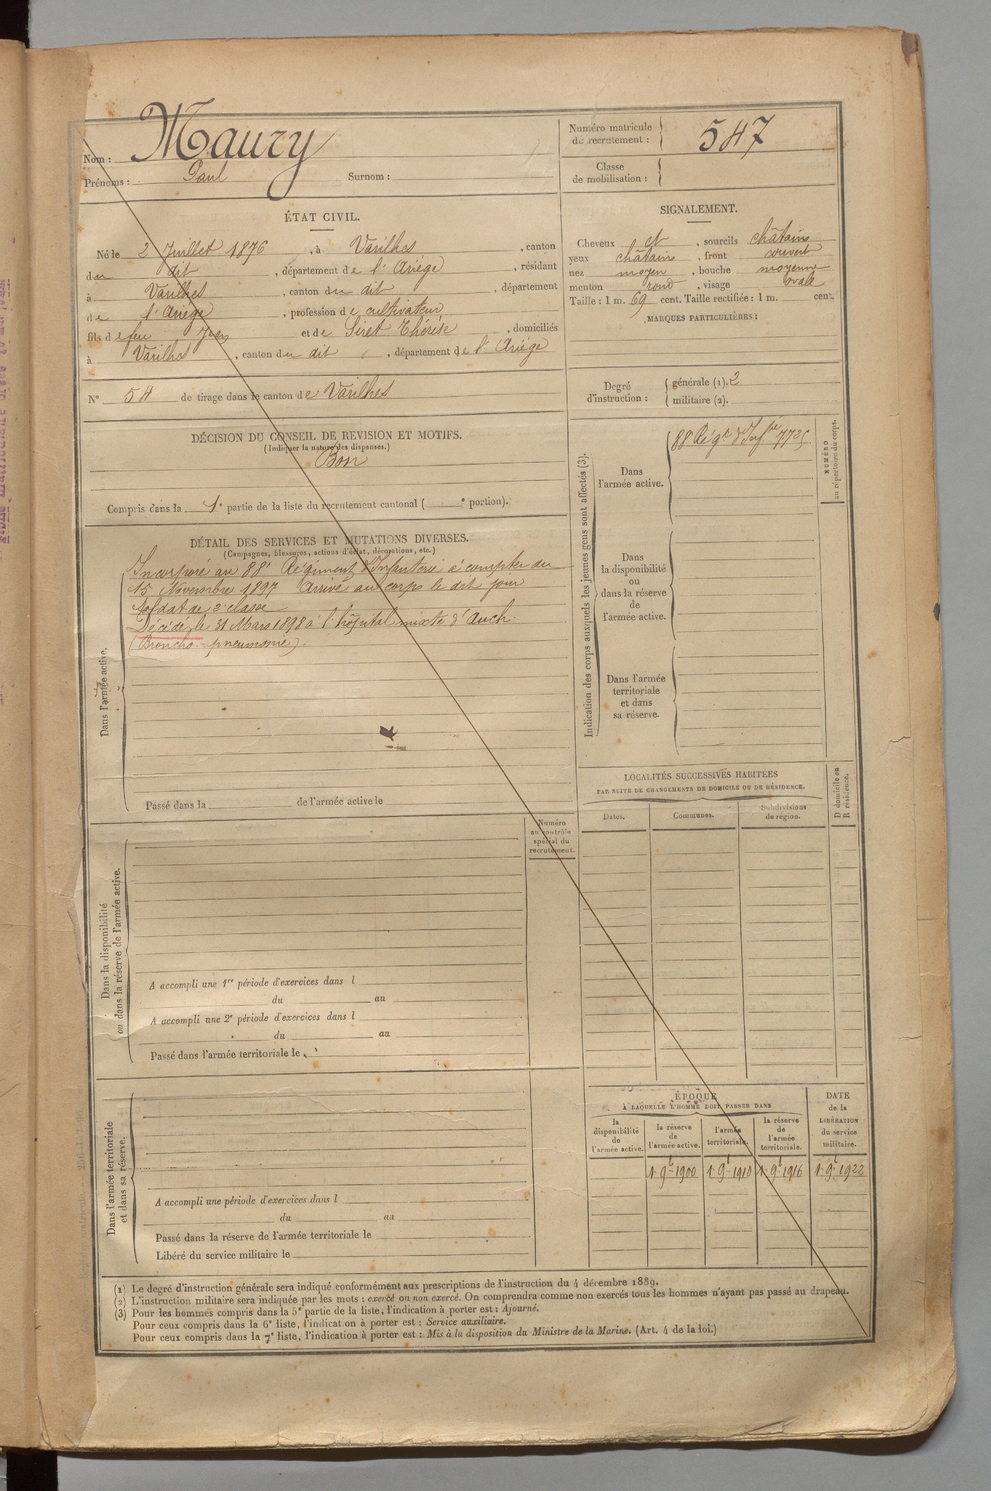 Nom : Maury
Prénoms : Paul Surnom :
Numéro matricule du recrutement : 547
Classe de mobilisation :
ÉTAT CIVIL.
Né le 2 Juillet 1876, à Varilhes, canton
du dit, département de l'Ariège, résidant
à Varilhes, canton du dit, département
de l'Ariège, profession de cultivateur,
fils de feu Jean et de Siret Thérèse, domiciliés
à Varilhes, canton du dit, département de l'Ariège
N° 54 de tirage dans le canton de Varilhes
SIGNALEMENT.
Cheveux et, sourcils châtains
yeux châtains, front ouvert
nez moyen, bouche moyenne
menton rond, visage ovale
Taille : 1 m. 69 cent. Taille rectifiée : 1 m. cent.
MARQUES PARTICULIÈRES :
Degré d'instruction : générale (1). 2
militaire (2).
DÉCISION DU CONSEIL DE REVISION ET MOTIFS.
(Indiquer la nature des dispenses.)
Bon
Compris dans la 1e partie de la liste du recrutement cantonal ( e portion).
DÉTAIL DES SERVICES ET MUTATIONS DIVERSES.
(Campagnes, blessures, actions d'éclat, décorations, etc.)
Dans l'armée active.
Incorporé au 88e Régiment d'Infanterie à compter du
15 Novembre 1897 Arrivé au corps le dit jour
Soldat de 2e classe
Décédé le 31 Mars 1898 à l'hôpital mixte d'Auch.
(Broncho-pneumonie).
Passé dans la de l'armée active le
Indication des corps auxquels les jeunes gens sont affectés (3).
Dans l'armée active.
88e Régt d'Infrie 7735
NUMÉRO au répertoire du corps.
Dans la disponibilité ou dans la réserve de l'armée active.
Dans l'armée territoriale et dans sa réserve.
LOCALITÉS SUCCESSIVES HABITÉES
PAR SUITE DE CHANGEMENTS DE DOMICILE OU DE RÉSIDENCE.
Dates. Communes. Subdivisions de région.
D domicile ou R résidence.
Numéro au contrôle spécial du recrutement.
Dans la disponibilité ou dans la réserve de l'armée active.
A accompli une 1re période d'exercices dans l
du au
A accompli une 2e période d'exercices dans l
du au
Passé dans l'armée territoriale le
Dans l'armée territoriale et dans sa réserve.
A accompli une période d'exercices dans l
du au
Passé dans la réserve de l'armée territoriale le
Libéré du service militaire le
ÉPOQUE
À LAQUELLE L'HOMME DOIT PASSER DANS
la disponibilité de l'armée active.
la réserve de l'armée active.
l'armée territoriale.
la réserve de l'armée territoriale.
DATE de la LIBÉRATION du service militaire.
1 9e 1900 1 9e 1910 1 9e 1916 1 9e 1922
(1) Le degré d'instruction générale sera indiqué conformément aux prescriptions de l'instruction du 4 décembre 1889.
(2) L'instruction militaire sera indiquée par les mots : exercé ou non exercé. On comprendra comme non exercés tous les hommes n'ayant pas passé au drapeau.
(3) Pour les hommes compris dans la 5e partie de la liste, l'indication à porter est : Ajourné.
Pour ceux compris dans la 6e liste, l'indication à porter est : Service auxiliaire.
Pour ceux compris dans la 7e liste, l'indication à porter est : Mis à la disposition du Ministre de la Marine. (Art. 4 de la loi.)